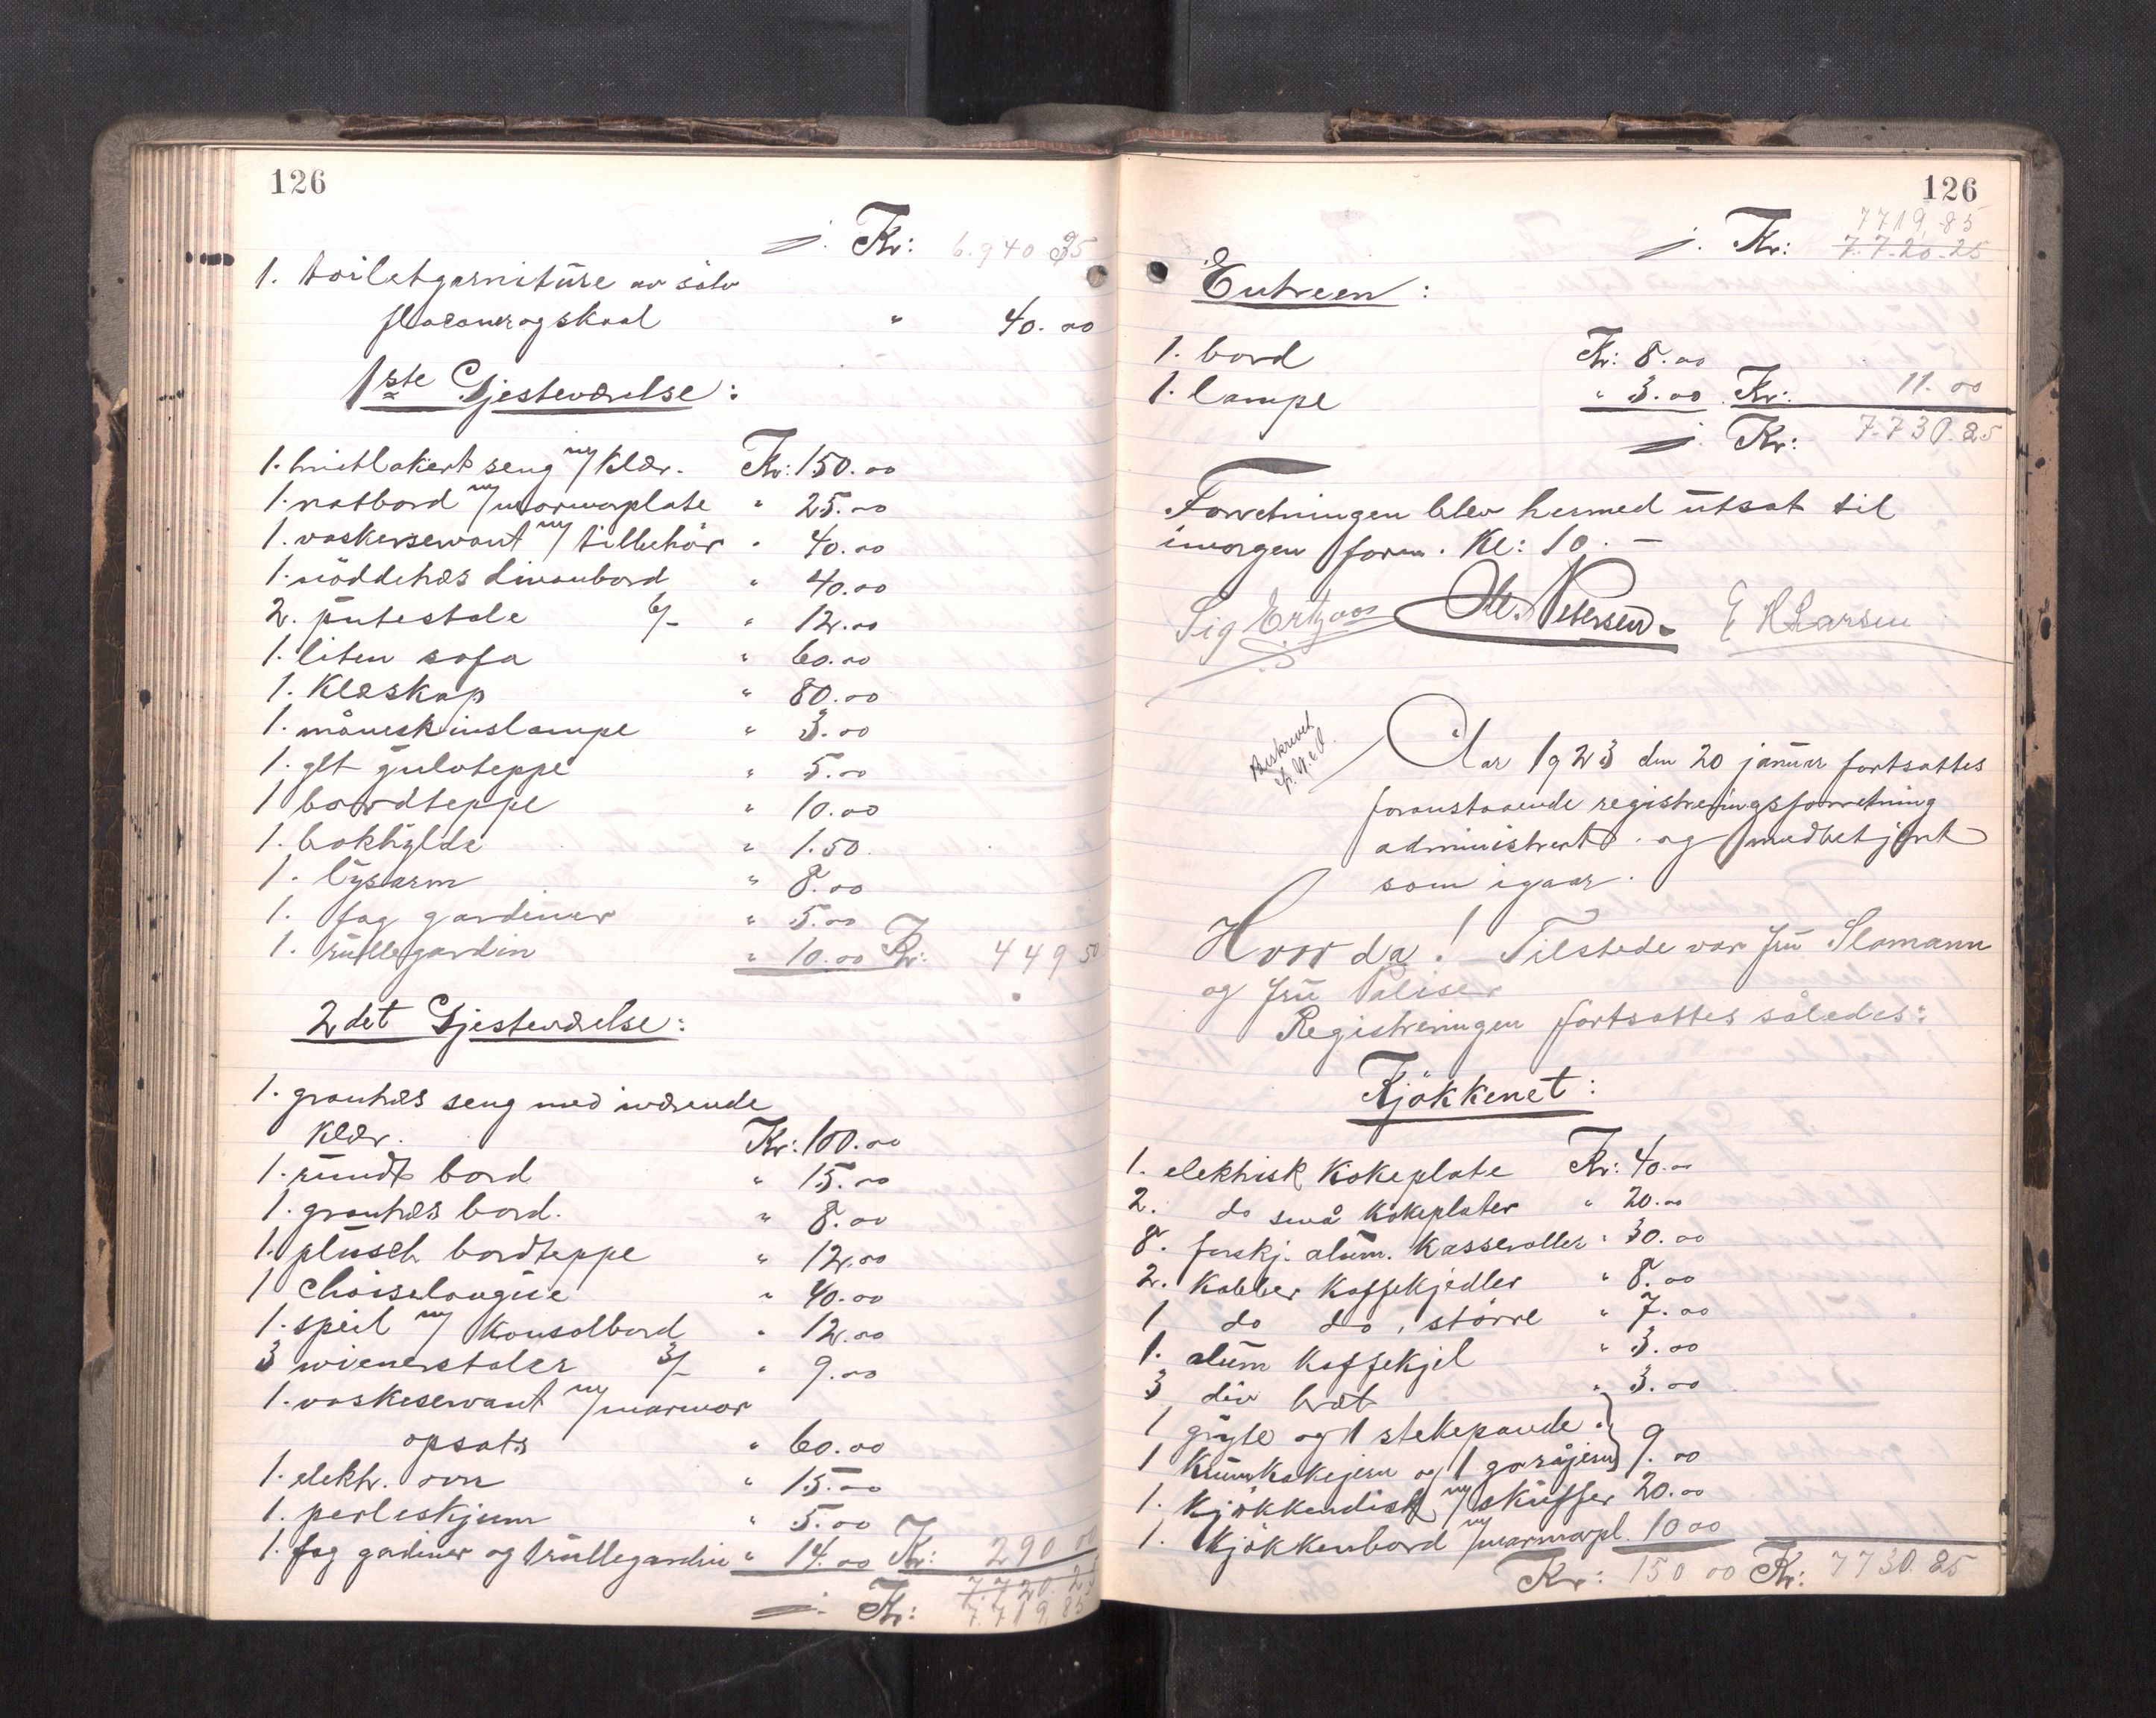 126
j. Kr: 6.940 35
1. toiletgarniture av sölv
flaconer og skaal " 40.00
1ste Gjesteværelse:
1. hvitlakert seng m/ klær. Kr: 150.00
1. natbord m/ marmorplate " 25.00
1. vaskeservant m/ tilbehör " 40.00
1. nöddetræs divanbord " 40.00
2. putestole 6/- " 12.00
1. liten sofa " 60.00
1. Klæskap " 80.00
1. måneskinslampe " 3.00
1. glt gulvteppe " 5.00
1 bordteppe " 10.00
1. bokhylde " 1.50
1. lysarm " 8.00
1. fag gardiner " 5.00
1. rullegardin " 10.00 Kr: 449 50
2det Gjesteværelse:
1. grantræs seng med iværende
klær. Kr: 100.00
1. rundt bord " 15.00
1. grantræs bord. " 8.00
1. plüsch bordteppe " 12.00
1 Chaiselongüe " 40.00
1. speil m/ Konsolbord " 12.00
3 wienerstoler 3/- " 9.00
1. vaskeservant m/ marmor
opsats " 60.00
1. elektr. ovn " 15.00
1. perleskjerm " 5.00
1. fag gardiner og 1 rullegardin " 14.00 Kr: 290 00
7.720.25
j. Kr: 7.719,85
126
7719,85
j. Kr: 7.720.25
Entreen:
1. bord Kr: 8.00
1. lampe " 3.00 Kr: 11.00
j. Kr: 7.730.85
Forretningen blev hermed utsat til
imorgen form. Kl: 10. –
Sig Ertzaas Petersen E H Larsen
Beskrevet
Aar 1923 den 20 januar fortsattes
foranstaaende registreringsforretning
administrert og medbetjent
som igaar.
Hvor da! Tilstede var fru Slomann
og fru Paliser
Registreringen fortsattes således:
Kjökkenet:
1. elektrisk Kokeplate Kr: 40.00
2. do små Kokeplater " 20.00
8. forskj. alum. Kasseroller " 30.00
2. Kobber Kaffekjedler " 8.00
1 do do, större " 7.00
1. alum Kaffekjel " 3.00
3 div bræt " 3.00
1 gryte og 1 stekepande
1 Krumkakejern og 1 goråjern } 9.00
1. Kjökkendisk m/ skuffer 20.00
1. Kjökkenbord m/ marmorpl. 10 00
Kr: 150 00 Kr: 7730.85